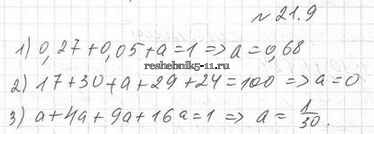 №21.9
1) 0,27+0,05+a=1 => a=0,68
www.reshebnik5-11.ru
2) 17+30+a+29+24=100 => a=0
3) a+4a+9a+16a=1 => a=1/30.